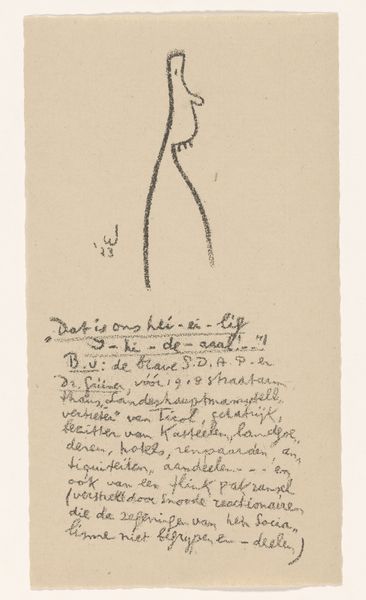 W
'23
„Dat is ons hei - ei - lig
I - hi - de - aaal! - "!
B.v: de brave S.D.A.P-er
Dr. Grüner, vóór 1918 straatarm
thans „Landeshauptmannstell„
vertreter" van Tirol, schatrijk,
bezitter van Kasteelen, landgoe„
deren, hotels, renpaarden, an„
tiquiteiten, aandeelen - - - en
ook van een flink pak ransel
(verstrekt door snoode reactionairen
die de zegeningen van het Socia„
lisme niet begrypen en - deelen.)